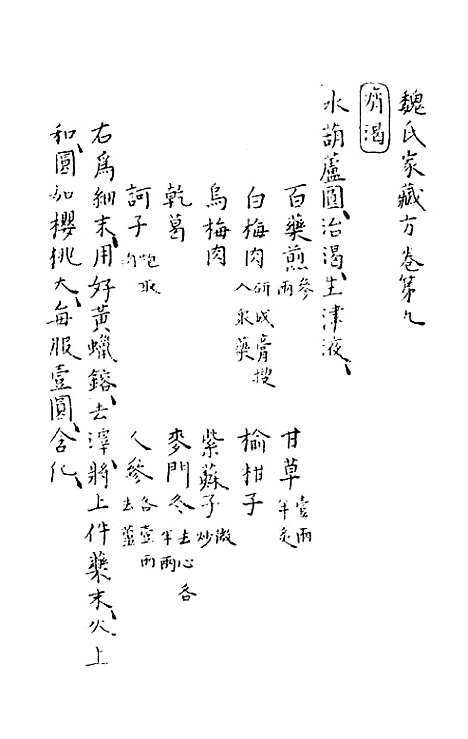 魏氏家藏方卷第九
痟渴
水葫蘆圓治渴生津液
百藥煎參兩
甘草壹兩半炙
白梅肉研成膏搜入衆藥
榆柑子
烏梅肉
紫蘇子微炒
乾葛
麥門冬去心各半兩
訶子炮取肉
人參各壹兩去蘆
右爲細末用好黃蠟鎔去滓將上件藥末火上
和圓如櫻桃大每服壹圓含化